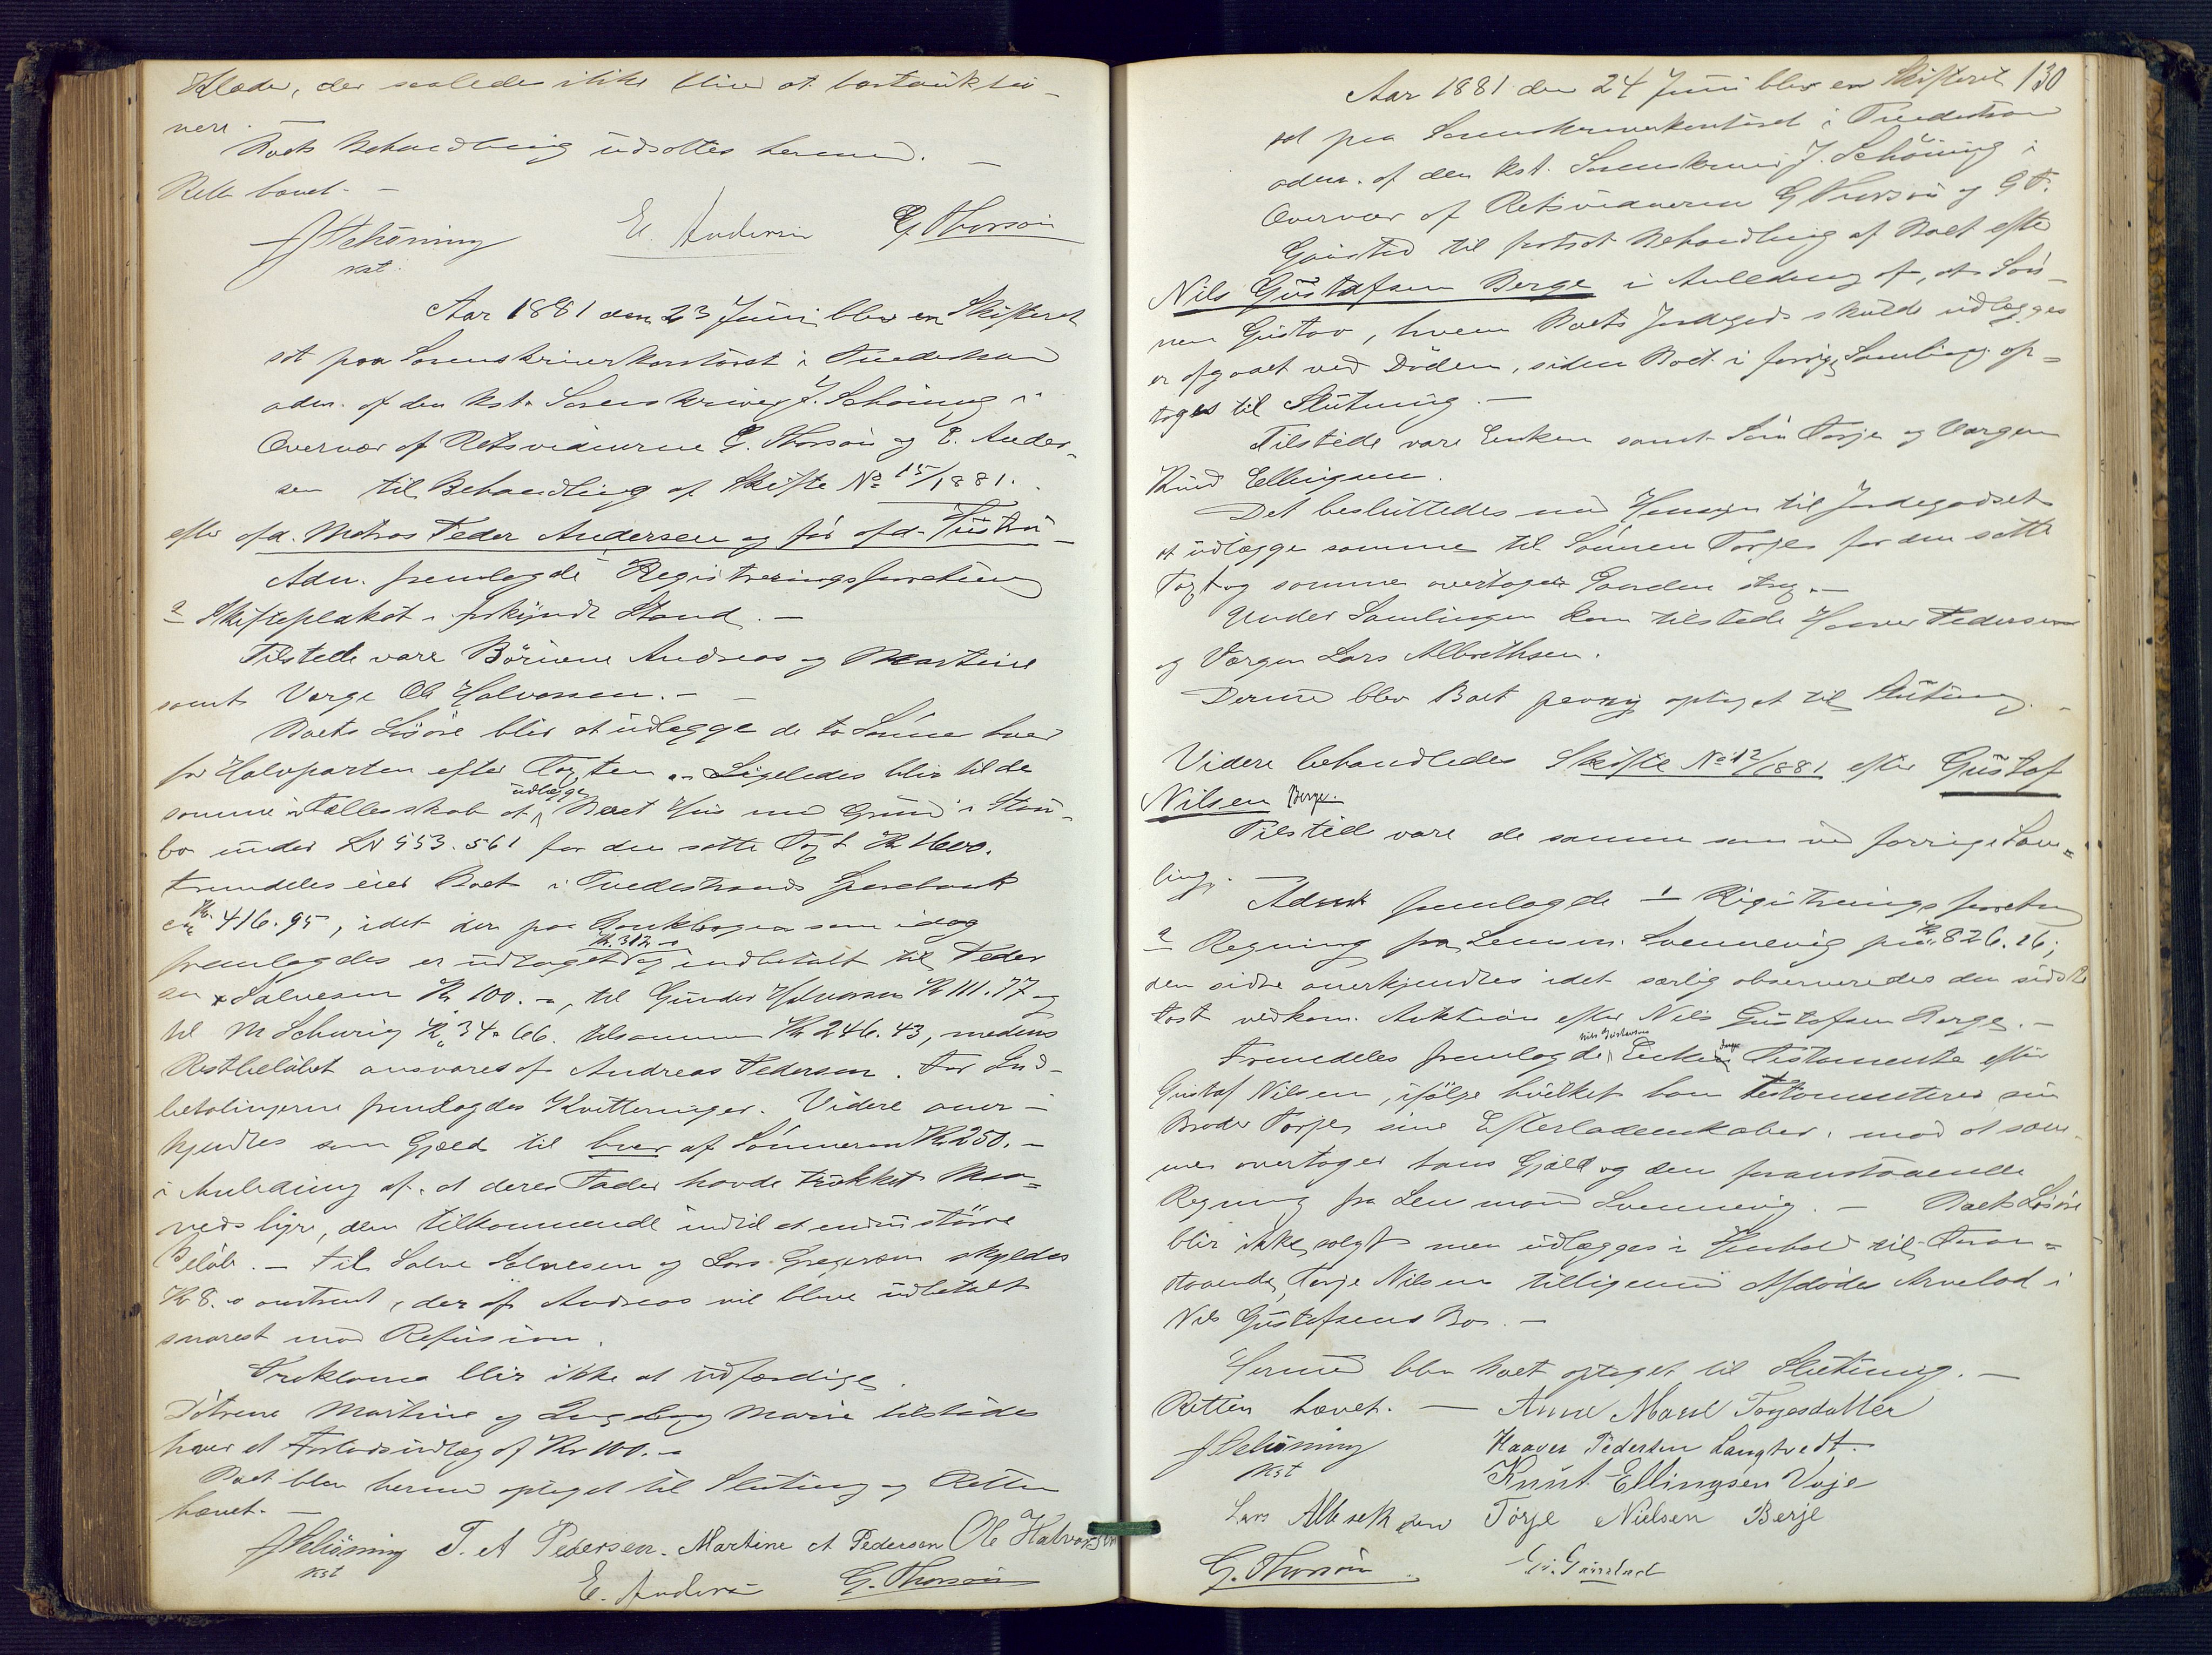 Klæder, der saaledes ikke bliver at bortauktio-
nere.
Boets Behandling udsattes hermed. —
Retten hævet. —
JSchöning
kst.
E. Andersen
G. Thorsön
Aar 1881 den 23 Juni blev en Skifteret
sat paa Sorenskriverkontoret i Tvedestrand
adm. af den kst. Sorenskriver J. Schöning i
Overvær af Retsvidnerne G. Thorsön og E. Ander-
sen til Behandling af Skifte No 15/1881.
efter afd. Matros Peder Andersen og før afd. Hustru —
Adm. fremlagde Registreringsforretning
2 Skifteplakat i forkyndt Stand. —
Tilstede vare Börnene Andreas og Martine
samt Værge Ole Halvorsen. —
Boets Lösöre blir at udlægge de to Sönner hver
for Halvparten efter Taxten. — Ligeledes blir til de
samme i Fællesskab at udlægge Boet Hus med Grund i
bo under LN 553. 561 for den satte Taxt Kr 1600.
Fremdeles eier Boet i Tvedestrands Sparebank
Kr. 416.95, idet der paa Bankbogen som idag
fremlagdes er udtaget Kr. 312 og indbetalt til Peder
Salvesen Kr 100. –, til Gunder Halvorsen Kr 111.77 og
til M Schurig Kr 34.66. tilsammen Kr 246.43, medens
Restbelöbet ansvares af Andreas Pedersen. For Ind-
betalingerne fremlagdes Kvitteringer. Videre aner-
kjendtes som Gjæld til hver af Sönnerne Kr 250. —
i Anledning af, at deres Fader havde trukket Maa-
nedshyre, dem tilkommende indtil et endnu större
Belöb. — Til Salve Salvesen og Lars Gregersen skyldes
Kr 8. – omtrent, der af Andreas vil blive udbetalt
snarest mod Refusion.
Proklama blir ikke at udfærdige.
Dötrene Martine og Ingeborg Marie tilstodes
hver et Forlodsudlæg af Kr 100. –
Boet blev hermed optaget til Slutning og Retten
hævet. —
JSchöning T. A Pedersen. Martine A Pedersen Ole Halvorsen
kst
E. Andersen G. Thorsön
130
Aar 1881 den 24 Juni blev en Skifteret
sat paa Sorenskriverkontoret i Tvedestrand
adm. af den kst. Sorenskriver J. Schöning i
Overvær af Retsvidnerne G Thorsön og G
til fortsat Behandling af Boet efter
Nils Gustafsen Berge i Anledning af, at Sön-
nen Gustav, hvem Boets Jordegods skulde udlægges
er afgaaet ved Döden, siden Boet i forrige Samling op-
toges til Slutning. —
Tilstede vare Enken samt Sön Torje og Værgen
Knud Ellingsen.
Det besluttedes med Hensyn til Jordegodset
at udlægge samme til Sönnen Torje for den satte
Taxt og samme overtager Gaarden strax. —
Under Samlingen kom tilstede Haaver Pedersen
og Værgen Lars Albrethsen.
Dermed blev Boet paany optaget til Slutning. —
Videre behandledes Skifte No 12/1881 efter Gustaf
Nilsen Berge.
Tilstede vare de samme som ved forrige Sam-
ling.
Adm fremlagde 1 Registreringsforretning
2 Regning fra Lensm. Svennevig paa Kr 826.16;
den sidste anerkjendtes idet særlig observeredes den sidste
Post vedkom. Auktion efter Nils Gustafsen Berge. —
Fremdeles fremlagde Nils Gustavsens Enke Testamente efter
Gustaf Nilsen, ifölge hvilket han testamenterer sin
Broder Torje sine Efterladenskaber, mod at sam-
me overtager hans Gjæld og den foranstaaende
Regning fra Lensmand Svennevig. — Boets Lösöre
blir ikke solgt men udlægges i Henhold til Foran-
staaende Torje Nilsen tilligemed Afdödes Arvelod i
Nils Gustafsens Bo. —
Hermed blev Boet optaget til Slutning. —
Retten hævet. — Anne Marie Torjesdatter
JSchöning Haaver Pedersen Langtvedt.
kst Knut Ellingsen Voje
Lars Albretsen Torje Nielsen Berje
G. Thorsön